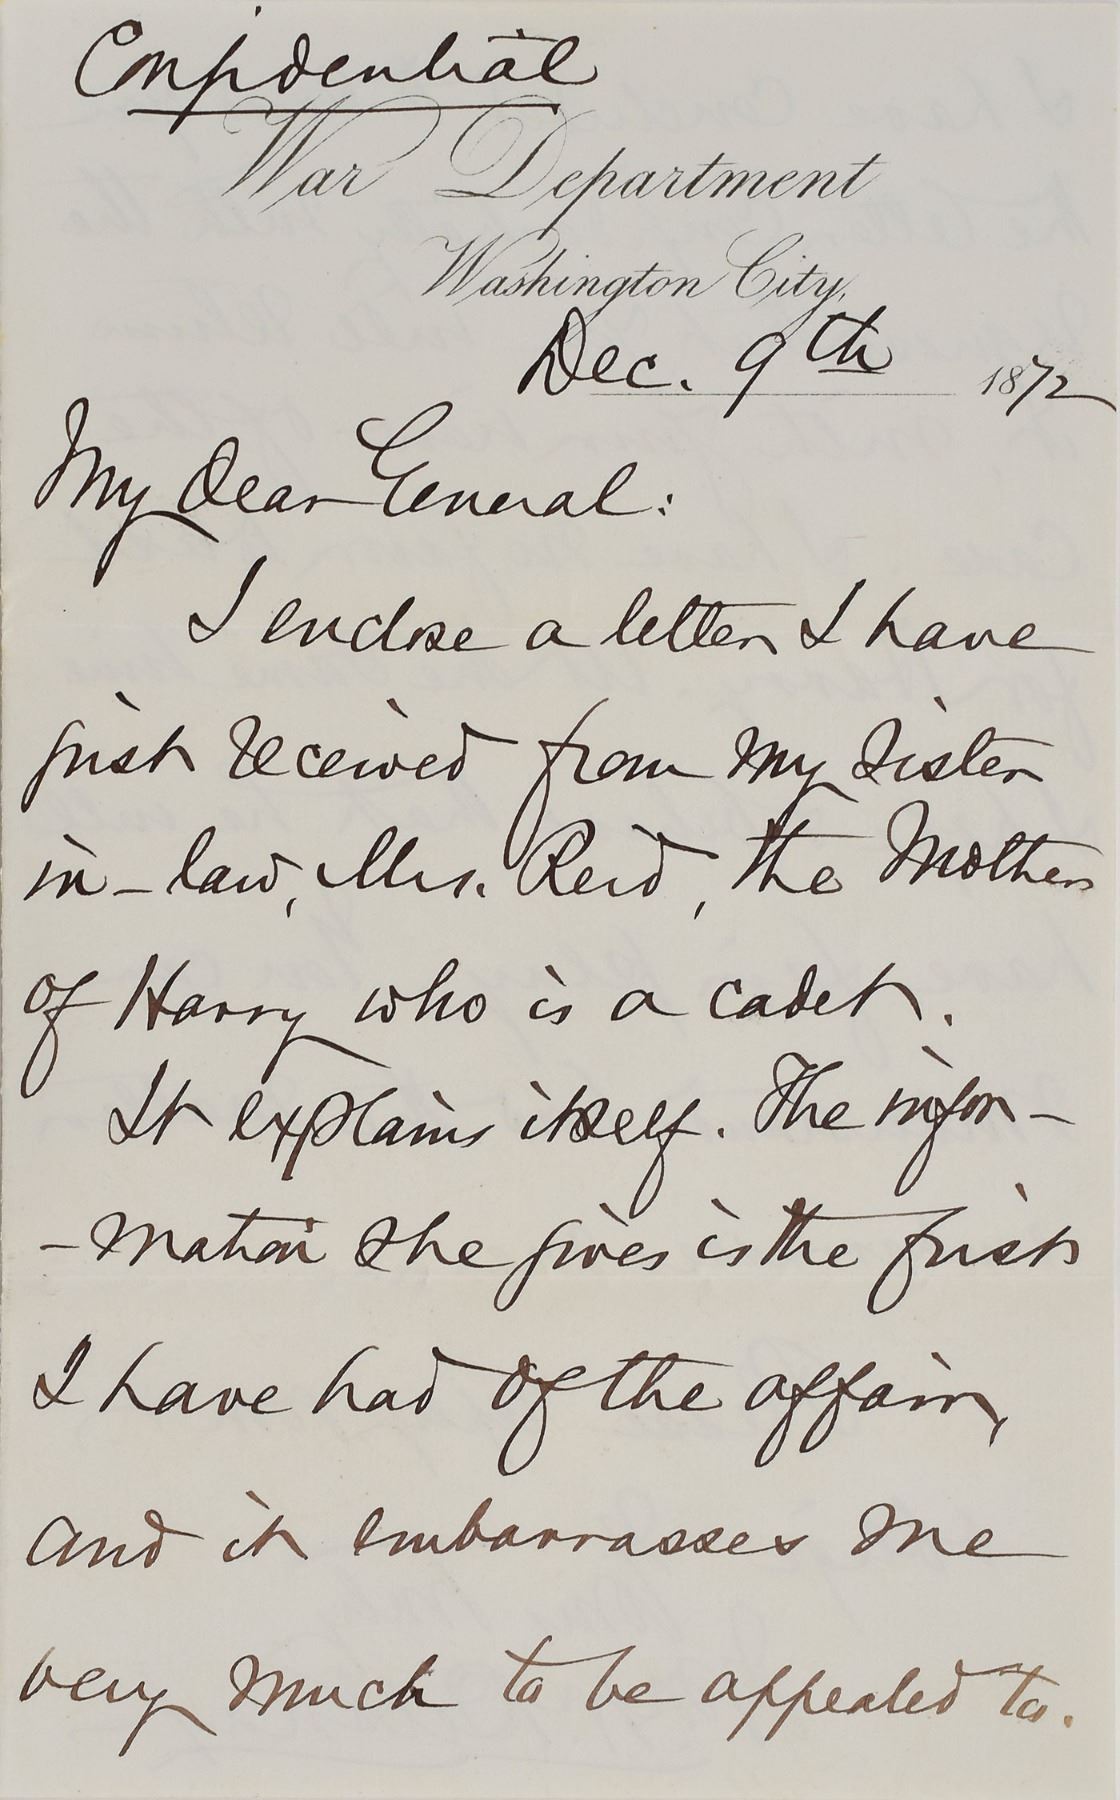 Confidential
War Department
Washington City,
Dec. 9th 1872
My dear General:
I enclose a letter I have
just received from my sister
in-law, Mrs. Reid, the Mother
of Harry who is a cadet.
It explains itself. The infor-
-mation she gives is the first
I have had of the affair,
and it embarrasses me
very much to be appealed to.